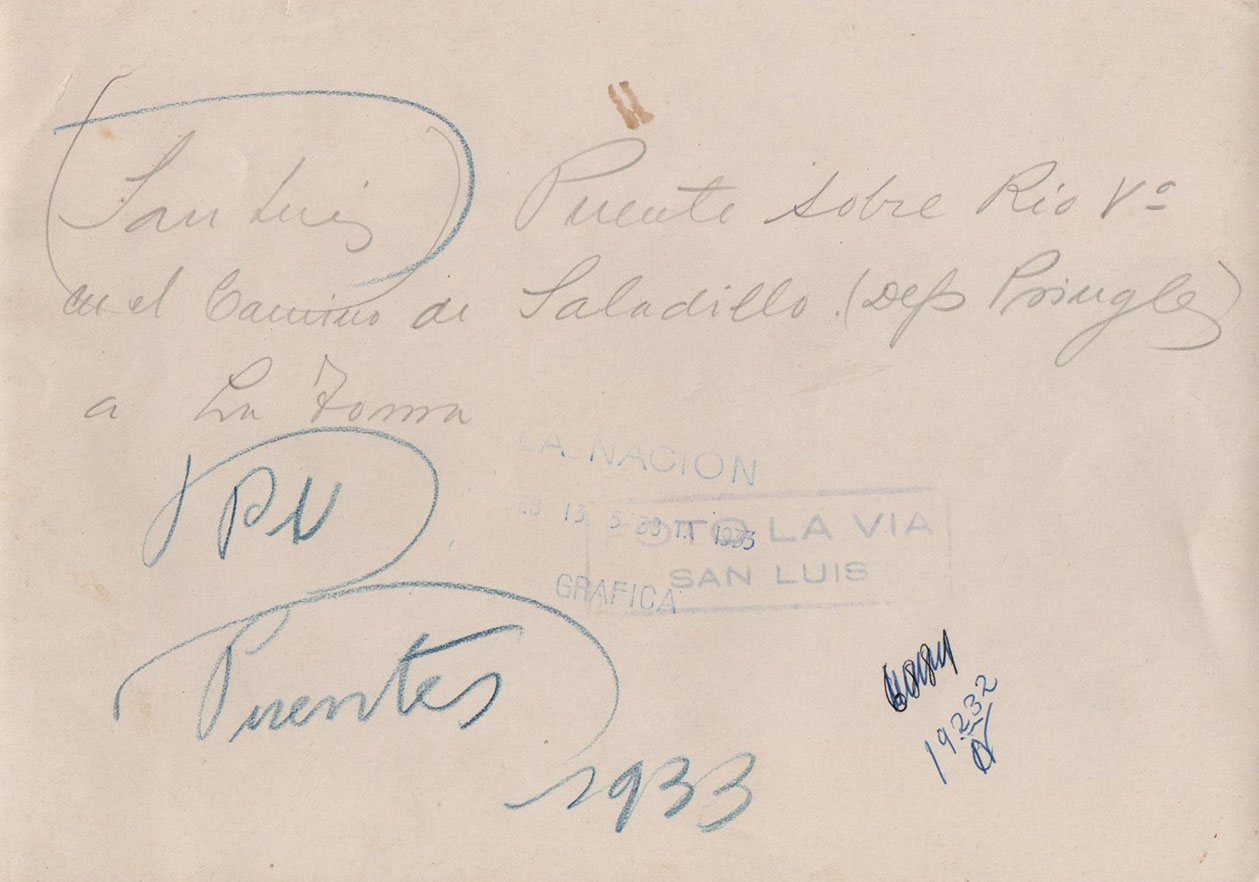 (San Luis) Puente sobre Río Vº
en el Camino de Saladillo (Dep Pringles)
a La Toma
PN
LA NACION
13 5 33
FOTO LA VIA
SAN LUIS
GRAFICA
Puentes
1933
19232